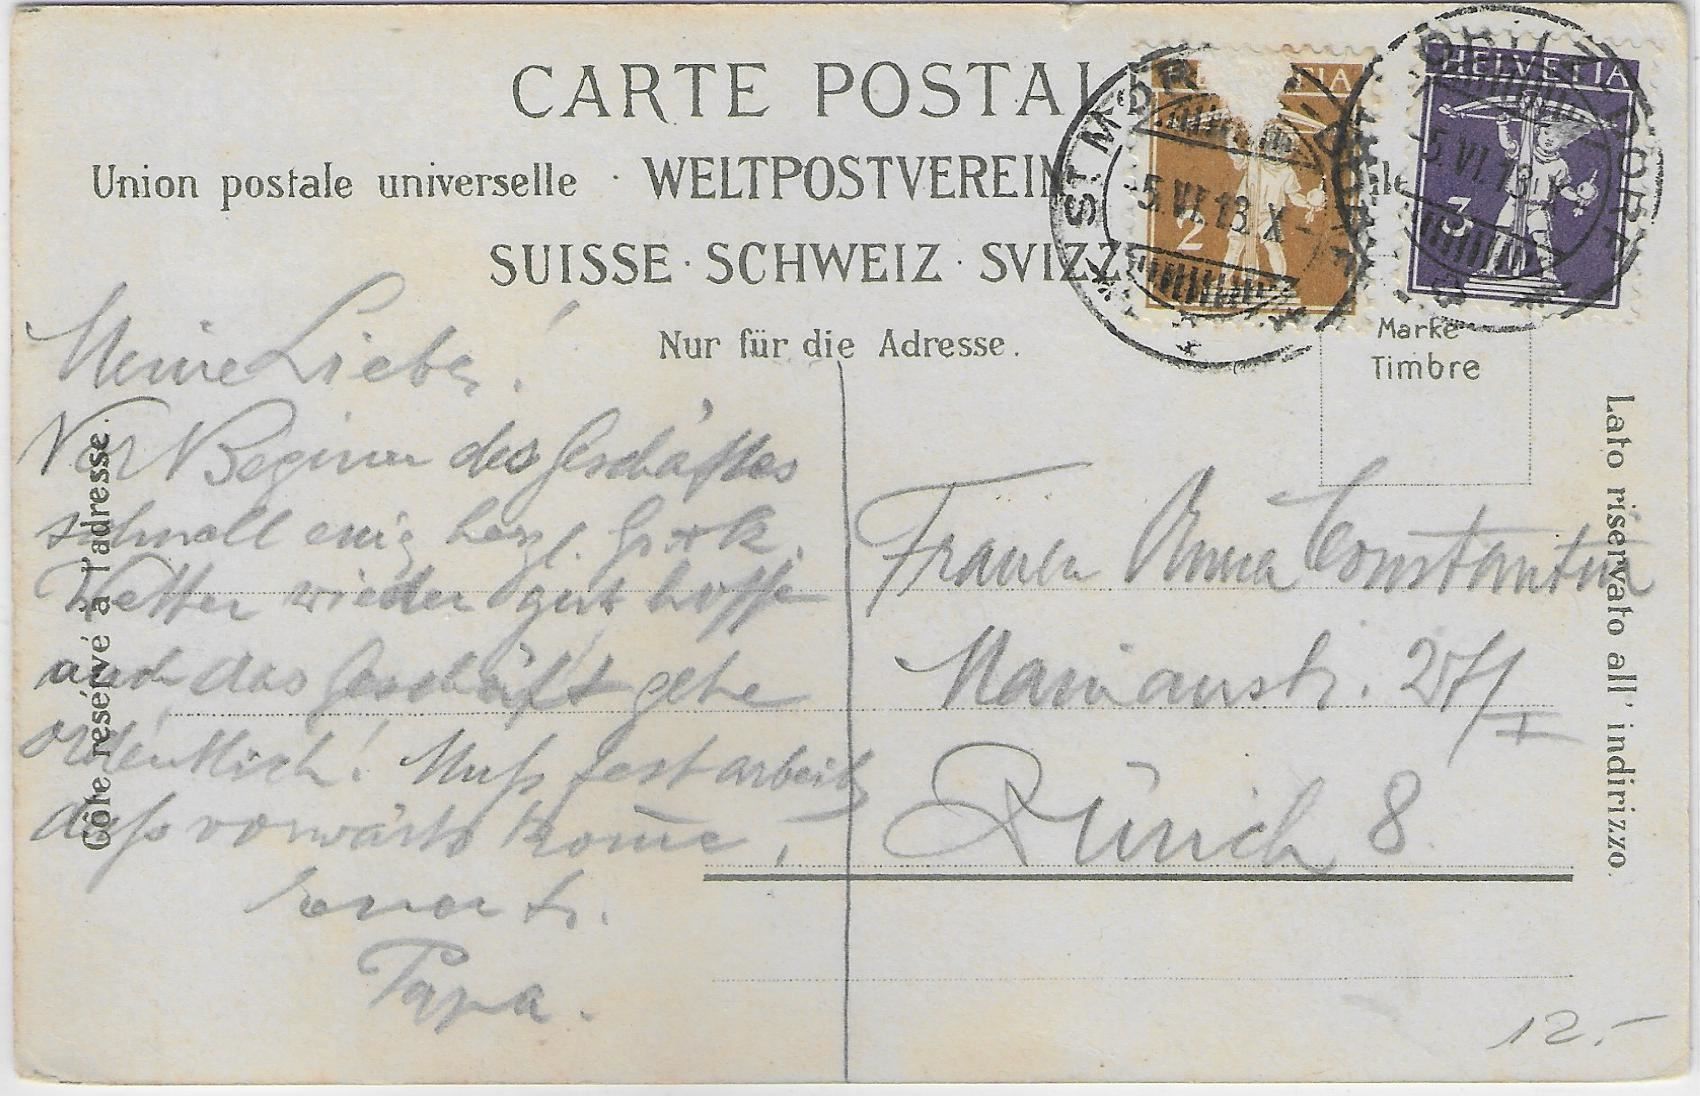 CARTE POSTAL
Union postale universelle · WELTPOSTVEREIN
SUISSE · SCHWEIZ · SVIZZ
Nur für die Adresse.
Côté reservé à l'adresse.
Lato riservato all' indirizzo.
Marke
Timbre
HELVETIA
2
3
ST. MORITZ
5.VI.13.X
5.VI.13.X
DORF
Meine Liebe!
Vor Beginn des Geschäftes
schnell einig herzl.
Wetter wieder gut hoffe
auch das Geschäft gehe
ordentlich! Muß fest arbeit
daß vorwärts kom̅e!
Papa.
Frauen Anna Constantin
Zürich 8
12.-